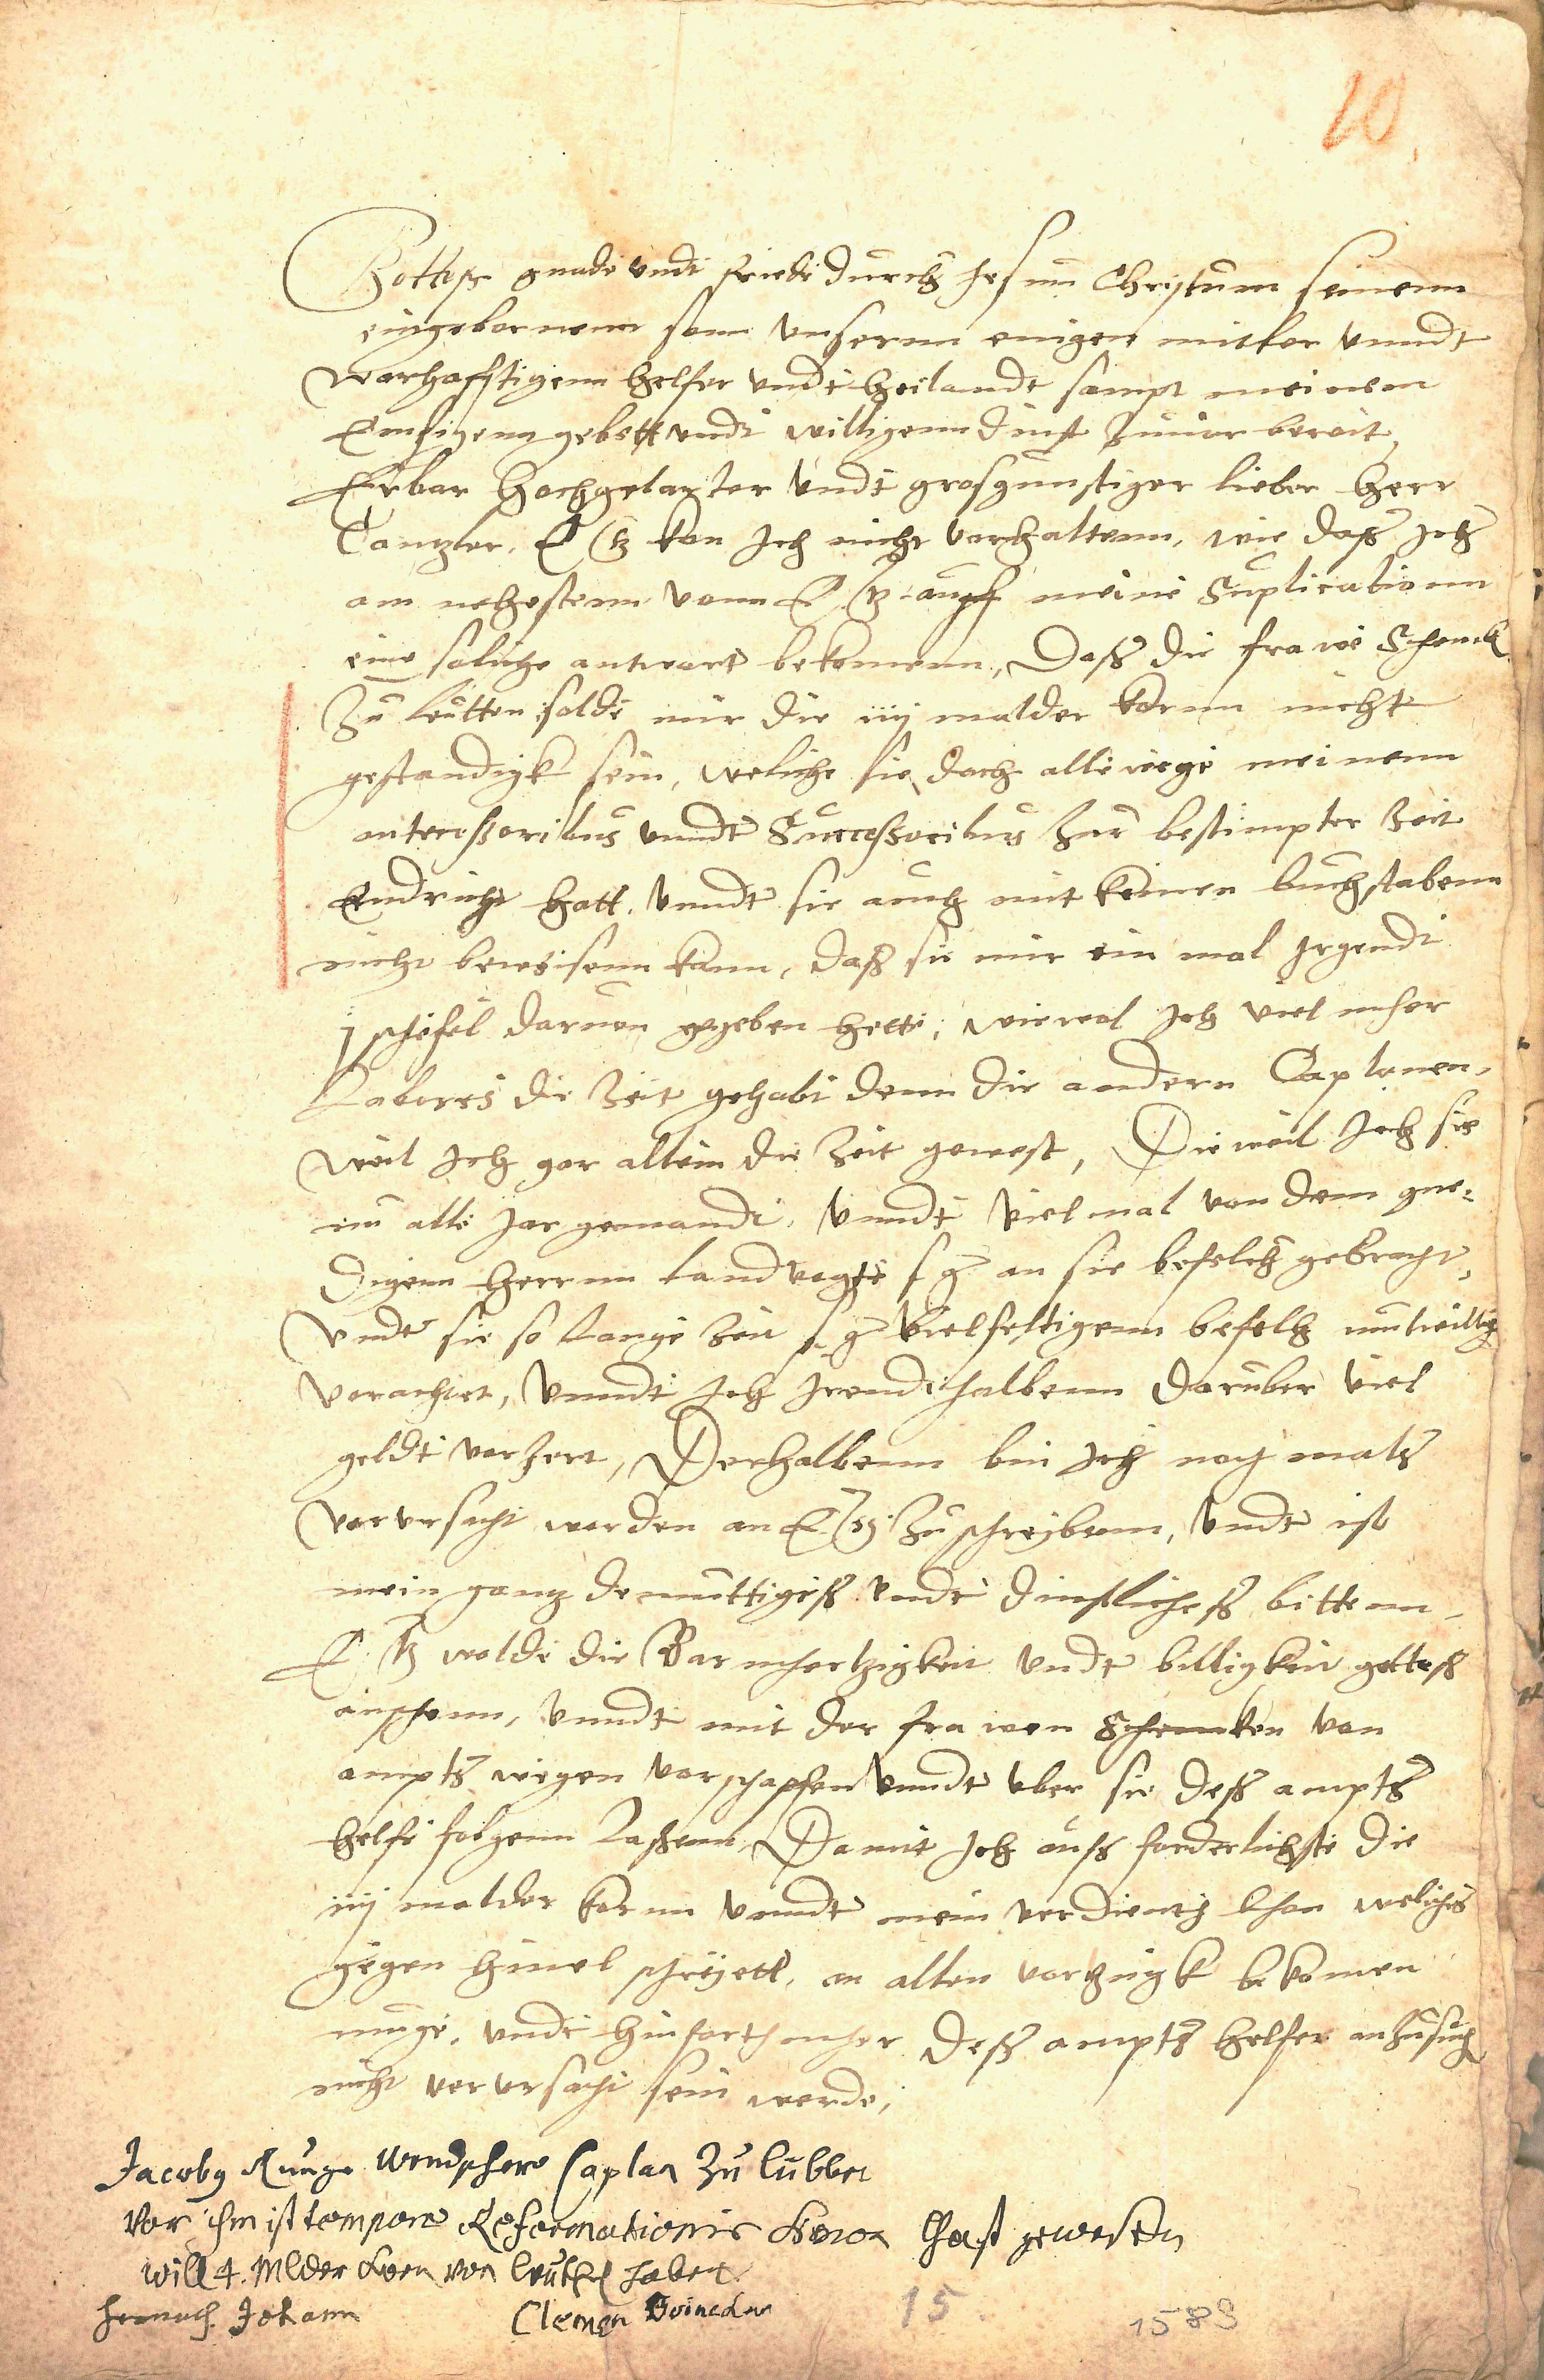 10
Gottes gnade undt friede durch Jesum Christum seinenn
eingebornenn sonn unsernn einigen mitler unndt
warhafftigenn helfer undt heilandt sampt meinem
Emsigenn gebett undt willigenn dinst zuuor bereit,
Erbar hochgelarter undt grosgunstiger lieber herr
Cantzler, E kan Ich nicht vorhaltenn, wie daß Ich
am nehestenn vonn E auff meine Suplicationn
eine soliche antwort bekomenn, Daß die frawe Schenck
Zu leutten solde mir die iiij malder kornn nicht
gestandigk sein, weliche sie doch allewege meinenn
antecessoribus unndt Successoribus zur bestimpter Zeit
Endricht hatt, unndt sie auch mit keinen buchstabenn
nicht beweisenn kann, daß sie mir ein mal Irgendt
j scheffel daruon gegeben hette, wiewol Ich viel meher
Labores die Zeit gehabt denn die andern Caplanen,
weil Ich gar allein die Zeit gewest, Dieweil Ich sie
nu alle Jar gemandt, unndt viel mal von dem gne-
digenn herrnn landtvogte s g an sie befelch gebracht,
undt sie so lange Zeit s g vielfeltigenn befelch mutwillig
vorachtet, unndt Ich Irendthalbenn daruber viel
geldt vorzert, Derhalbenn bin Ich nochmals
vorursacht worden an E zuschreybenn, undt ist
mein gantz demuttiges undt dinstliches bittenn,
E wolde die Barmhertzigkeit undt billigkeit gottes
ansehenn, unndt mit der frawen Schencken von
ampts wegen vorschaffen unndt uber sie des ampts
helfe folgenn laßenn, Damit Ich aufs forderlichste die
iiij malder kornn unndt mein verdients lhon weliches
gegen himel schreyett, an allen vortzugk bekomen
muge, undt hinforth meher deß ampts helfer anzusuchen
nicht verursacht sein werde,
Jacobus Runge wendischer Caplan zu lubben
vor ihm ist tempore Reformationis gewesen
will 4. Mlder korn von leuthen haben
hernach Johann Clemen
15
1589